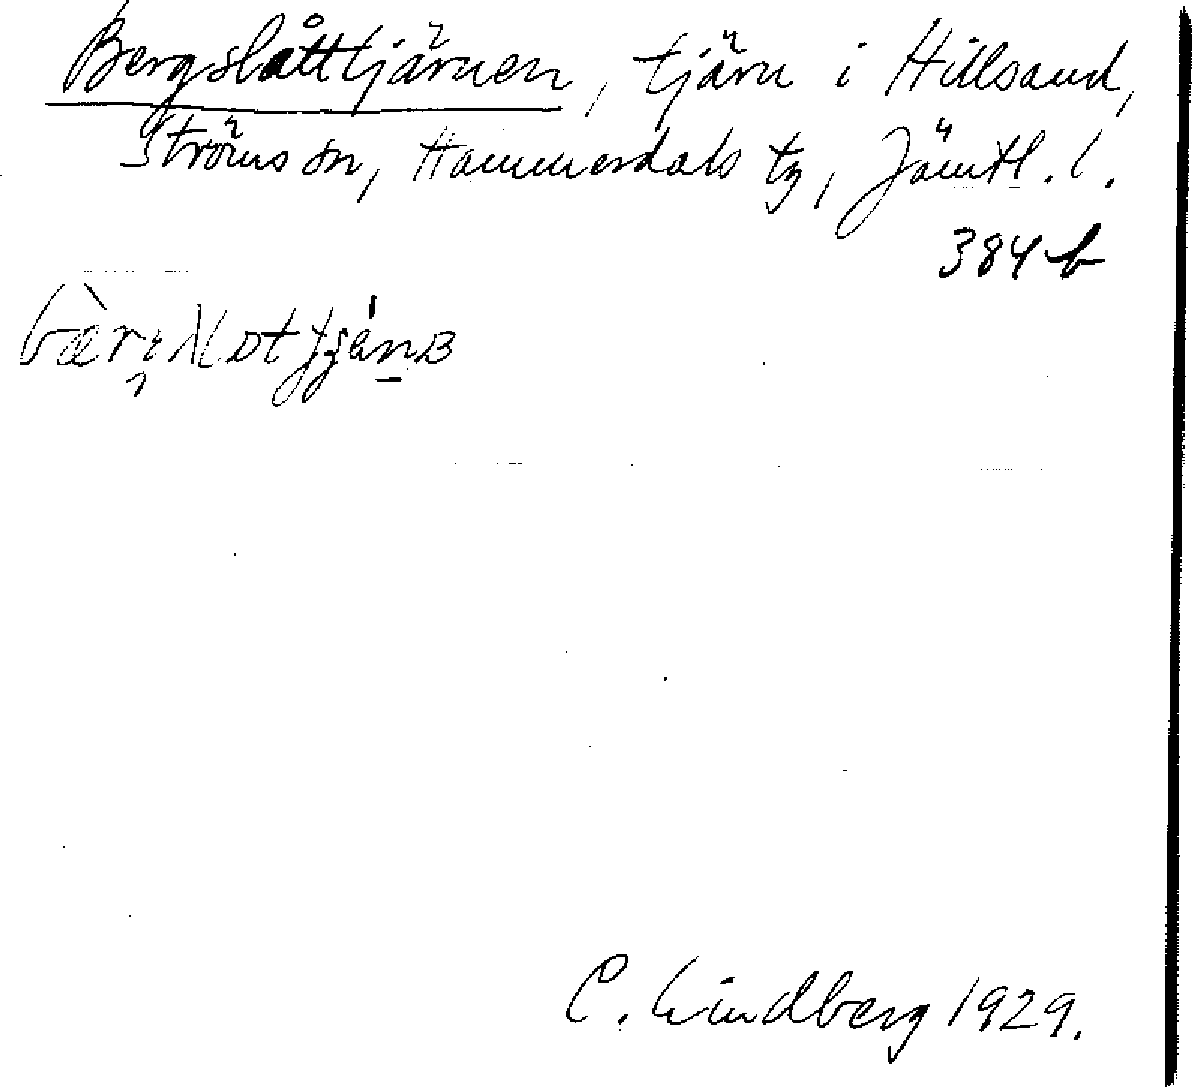 Bergslåttjärnen, tjärn i Hillsand,
Ströms sn, Hammerdals tg, Jämtl. l.
384 b
C. Lindberg 1929.